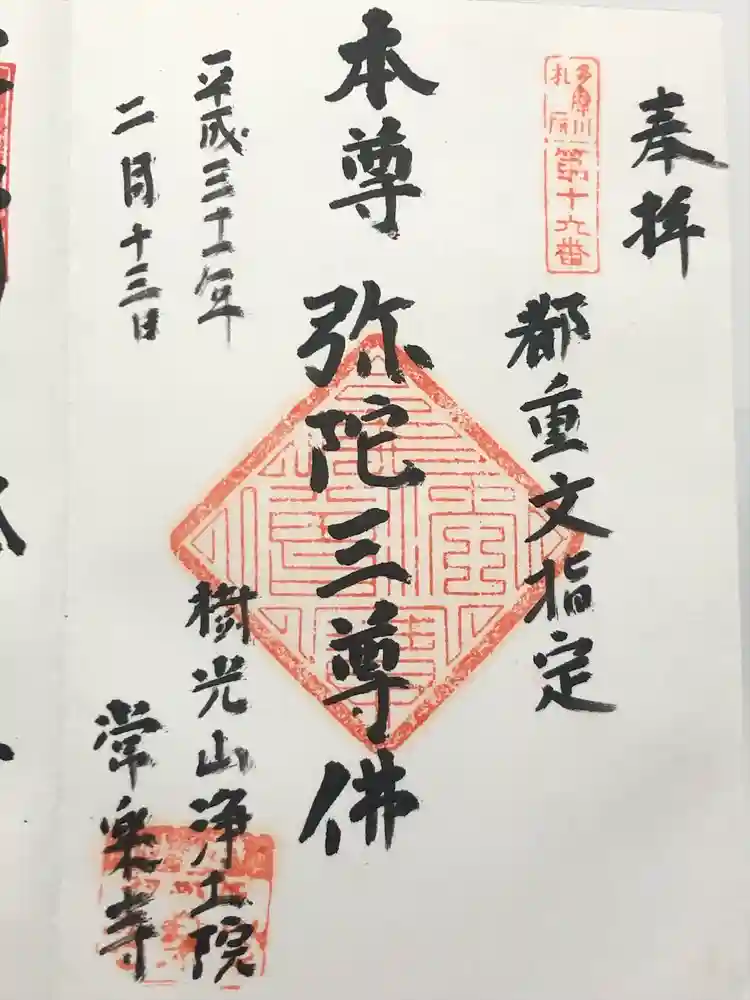 奉拝
多摩川
札所
第十九番
都重文指定
本尊 弥陀三尊佛
平成三十一年
二月十三日
樹光山浄土院
常楽寺